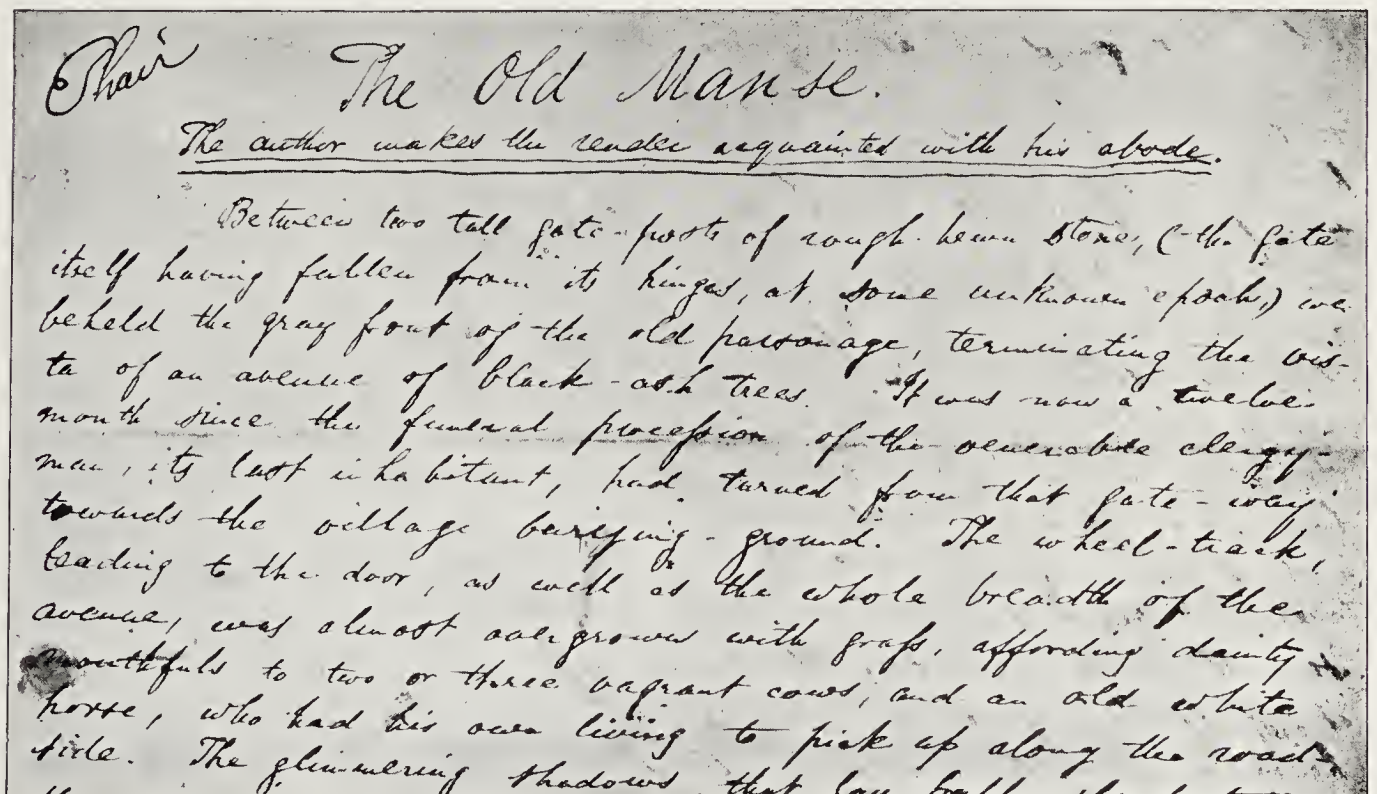 Phair
The Old Manse.
The author makes the reader acquainted with his abode.
Between two tall gate-posts of rough-hewn stone, (the gate
itself having fallen from its hinges, at some unknown epoch,) we
beheld the gray front of the old parsonage, terminating the vis-
ta of an avenue of black-ash trees. It was now a twelve-
month since the funeral procession of the venerable clergy-
man, its last inhabitant, had turned from that gate-way
towards the village burying-ground. The wheel-track,
leading to the door, as well as the whole breadth of the
avenue, was almost overgrown with grass, affording dainty
mouthfuls to two or three vagrant cows, and an old white
horse, who had his own living to pick up along the road-
side. The glimmering shadows, that lay half